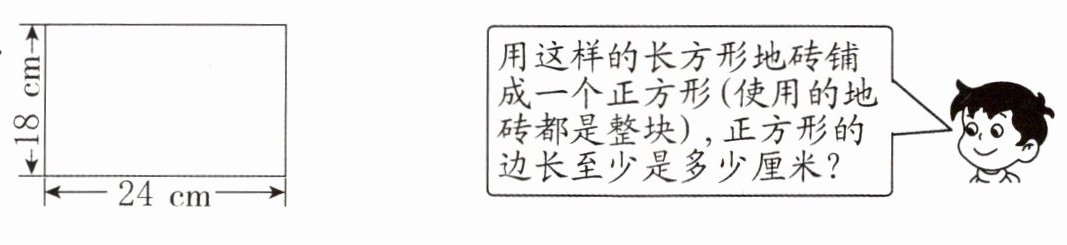 18 cm
24 cm
用这样的长方形地砖铺
成一个正方形(使用的地
砖都是整块),正方形的
边长至少是多少厘米?